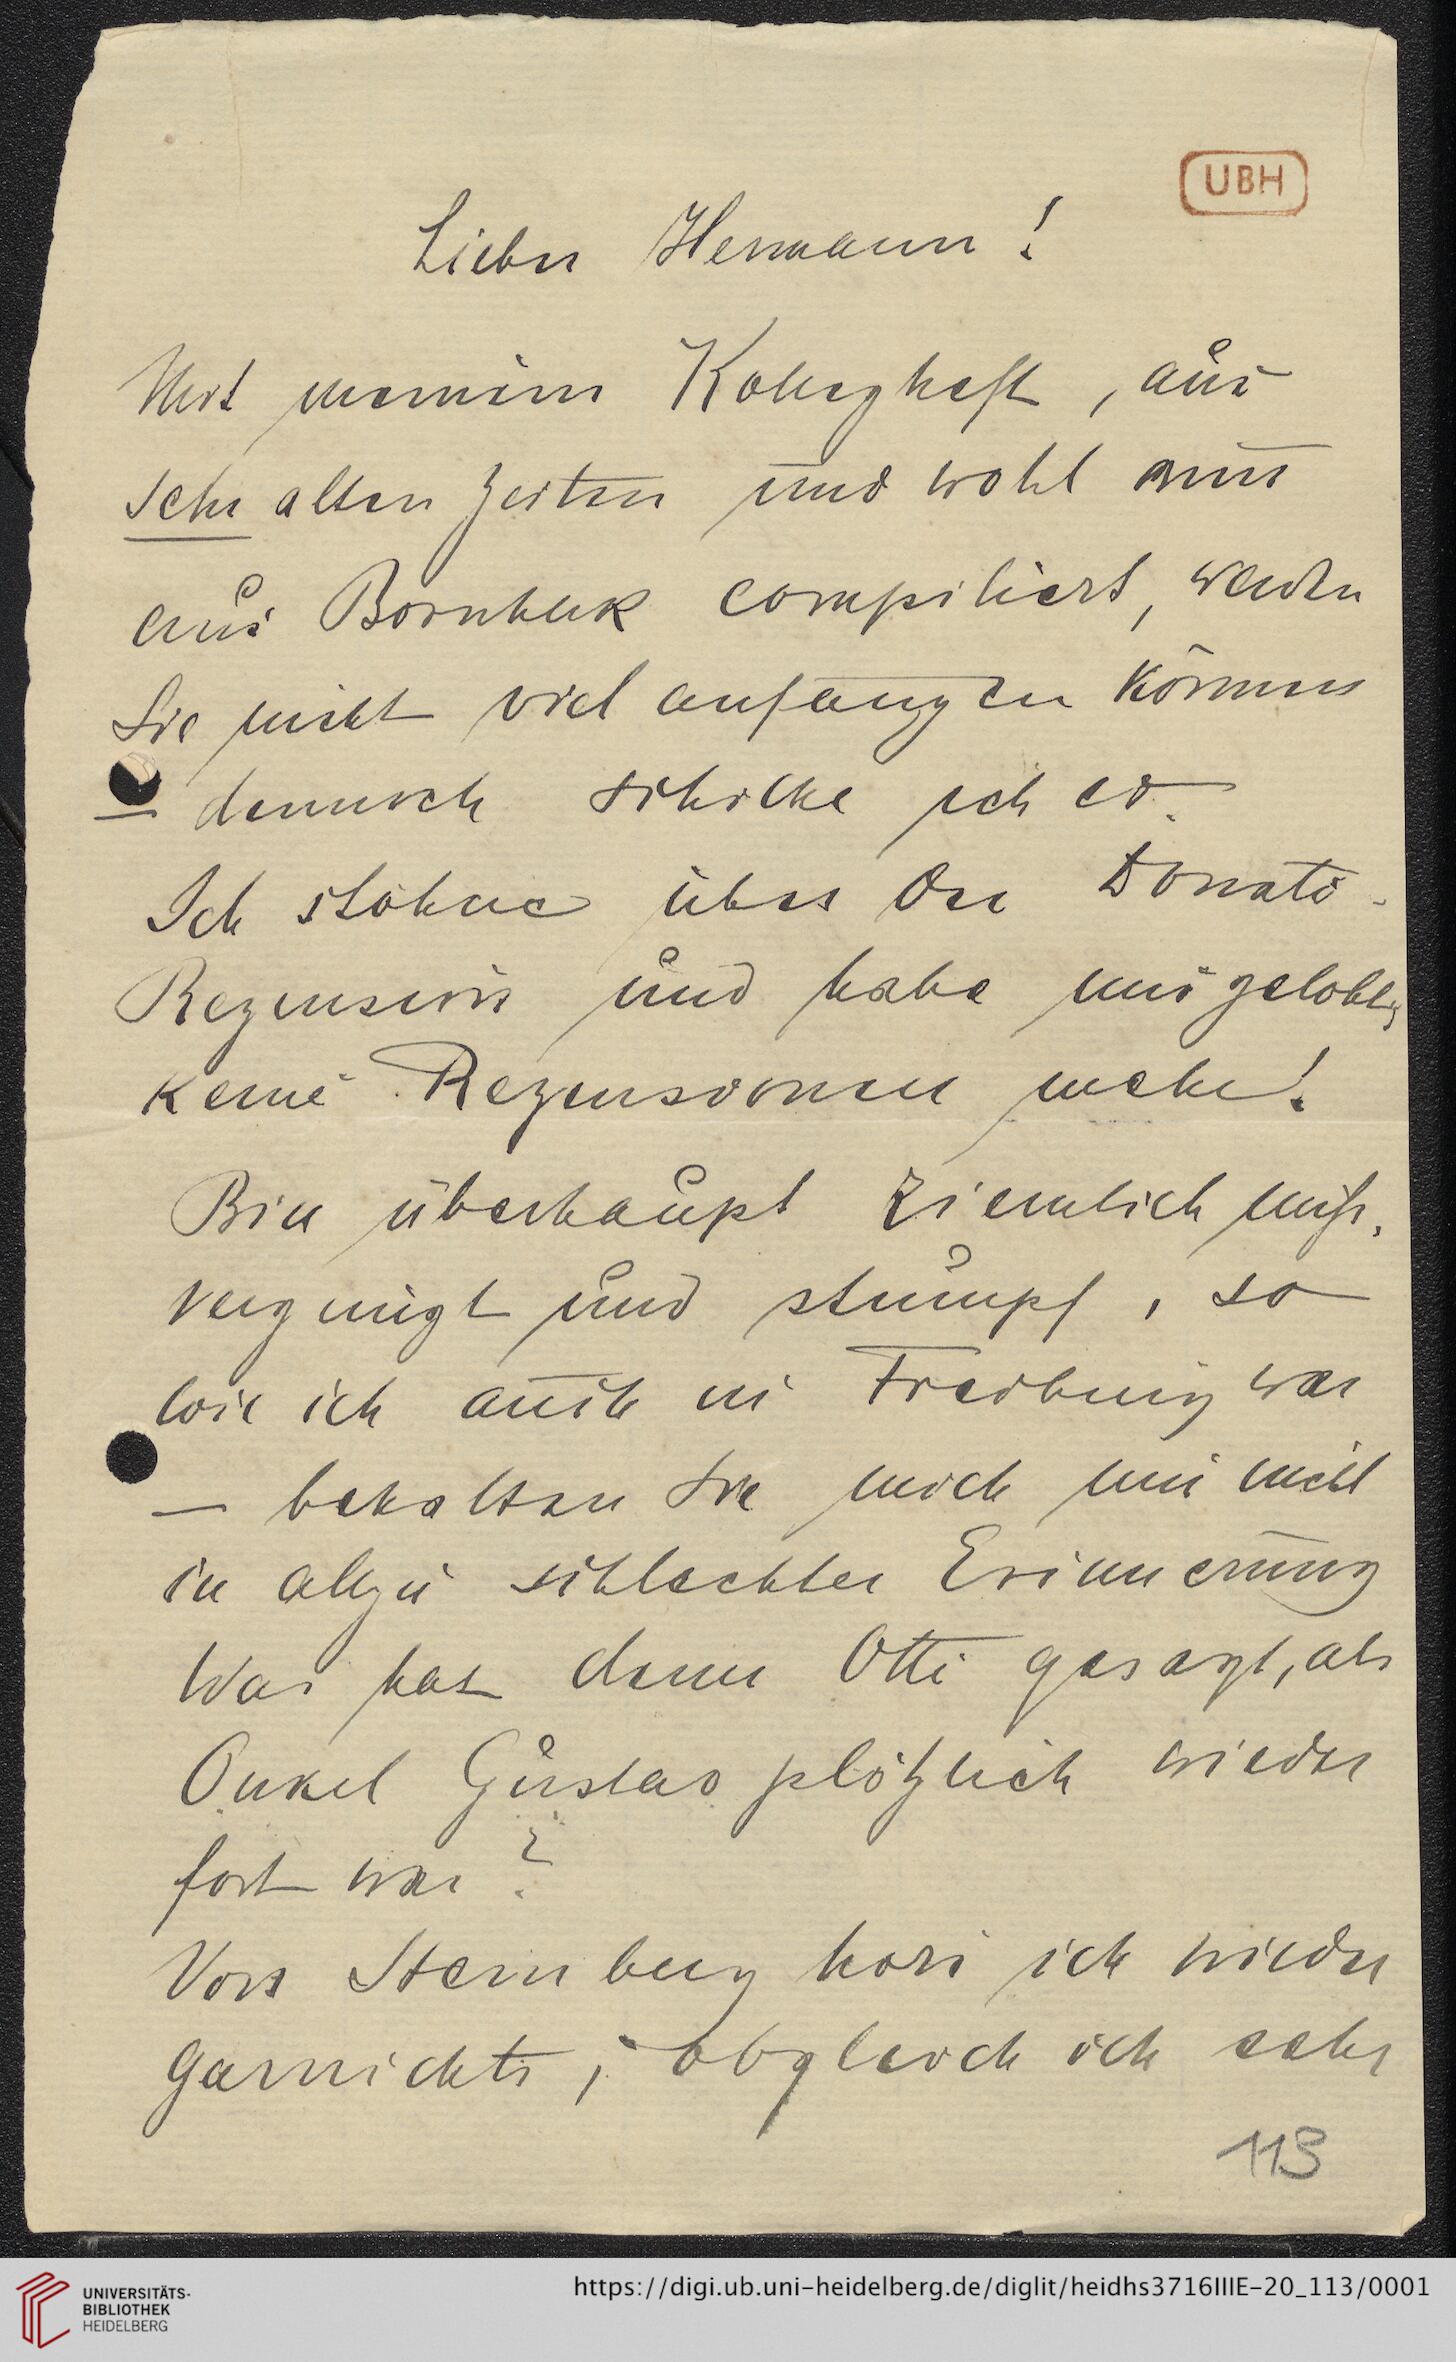 UBH
Lieber Hermann!
Mit meinem Kollegheft, aus
sehr alten Zeiten und wohl nur
aus Bornhak compiliert, werden
Sie nicht viel anfangen können
– dennoch schicke ich es.
Ich stöhne über der Donato-
Rezension und habe mir gelobt,
keine Rezensionen mehr!
Bin überhaupt ziemlich miß-
vergnügt und stumpf, so
wie ich auch in Freiburg war
– behalten Sie mich nur nicht
in allzu schlechter Erinnerung
Was hat denn Otti gesagt, als
Onkel Gustav plötzlich wieder
fort war?
Von Sternberg höre ich wieder
garnichts, obgleich ich sehr
113
UNIVERSITÄTS-
BIBLIOTHEK
HEIDELBERG
https://digi.ub.uni-heidelberg.de/diglit/heidhs3716IIIE-20_113/0001